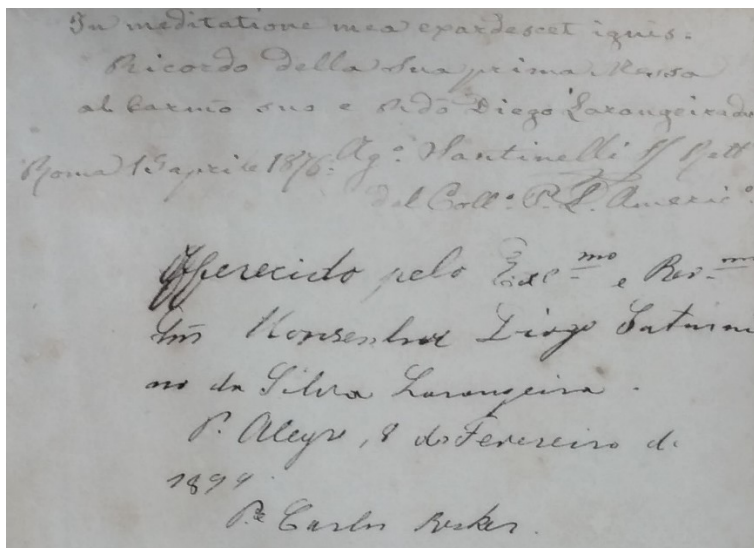 In meditatione mea exardescet ignis.
Ricordo della sua prima Messa
al Carmo suo e Rdo Diego Larangeira da
Roma 15 aprile 1876. Ago. Santinelli S/ Rett
del Collo. P. L. Americo.
Offerecido pelo Exc mo e Rev mo
Snr Monsenhor Diogo Saturni
no da Silva Larangeira.
P. Alegre, 8 de Fevereiro de
1899.
Pe Carlos Becker.